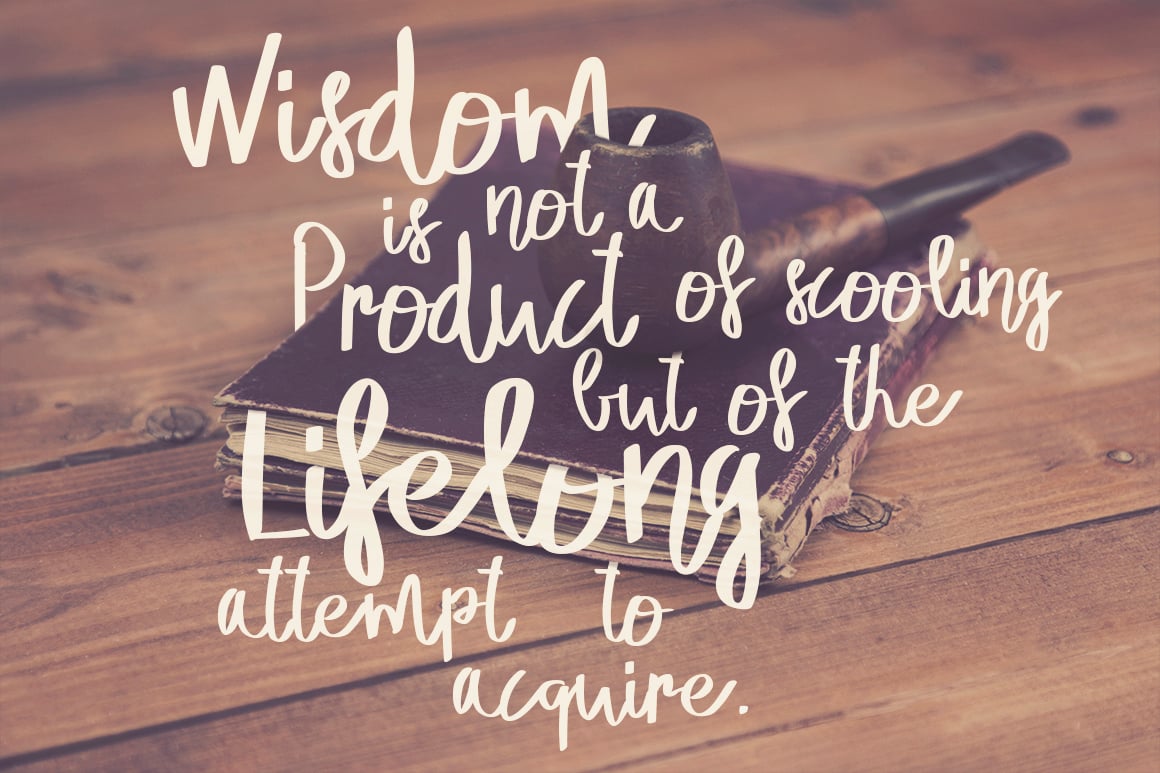 Wisdom
is not a
Product of scooling
but of the
Lifelong
attempt to
acquire.